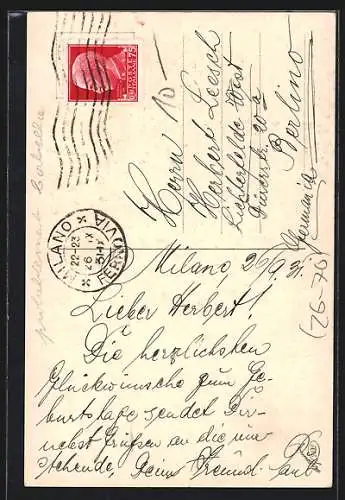 Herrn
Herbert Leesch
Lichterfelde West
Dürerstr. 20a
Berlino
Germania
10-
MILANO
FERROVIA
22-23
26 IX
Milano, 26/9.31.
Lieber Herbert!
Die herzlichsten
Glückwünsche zum Ge-
burtstage sendet Dir
nebst Grüßen an die um-
stehende, Dein Freund
(26-70)